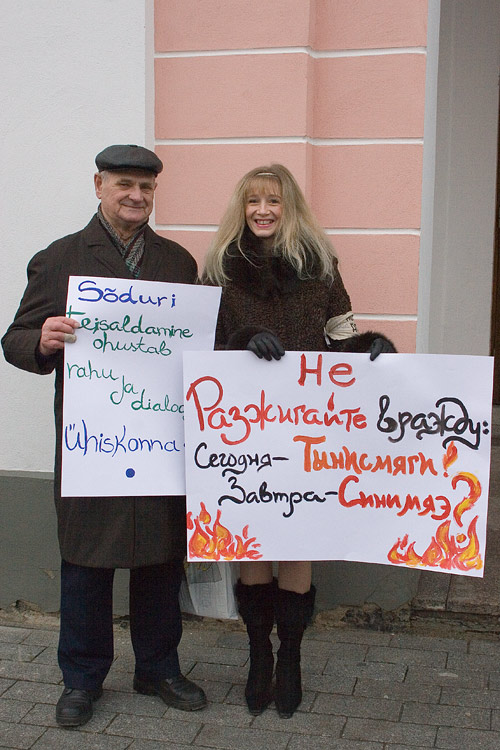 Sõduri
teisaldamine
ohustab
rahu ja
dialoo
Ühiskonna.
Не
Разжигайте вражду:
Сегодня – Тынисмяги!
Завтра – Синимяэ?